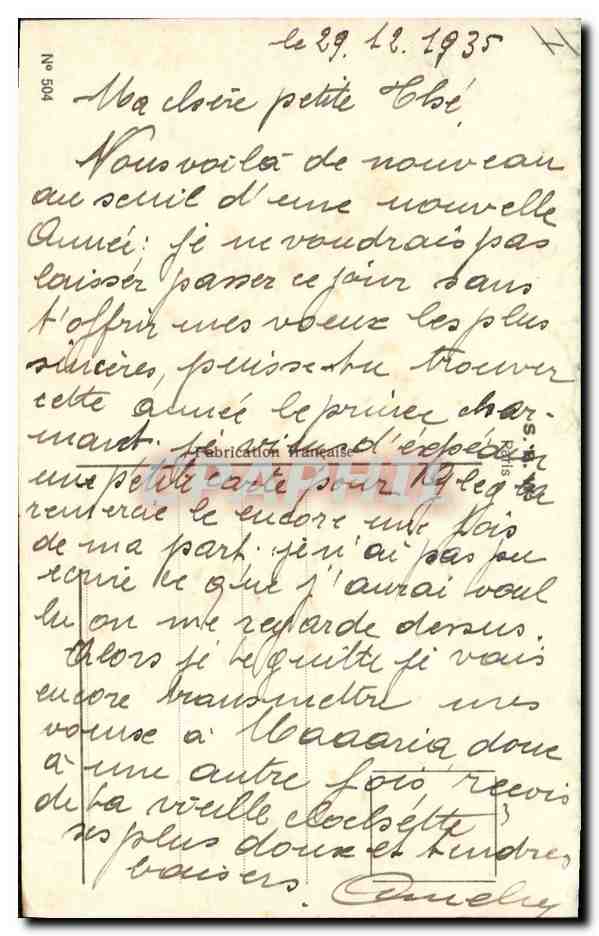 le 29.12.1935
Nº 504
Ma chère petite Thsé,
Nous voilà de nouveau
au seuil d'une nouvelle
Année: je ne voudrais pas
laisser passer ce jour sans
t'offrir mes voeux les plus
sincères, puisse-tu trouver
cette année le prince char-
mant. je viens d'expédier
S.
Paris
Fabrication française
une petite carte pour
remercie le encore une fois
de ma part. je n'ai pas pu
ecrire ce que j'aurai voul
lu on me regarde dessus.
Alors je te quitte je vais
encore transmettre mes
voeux à Maaaria donc
à une autre fois, recois
de ta vieille clochette
ses plus doux et tendres
baisers.